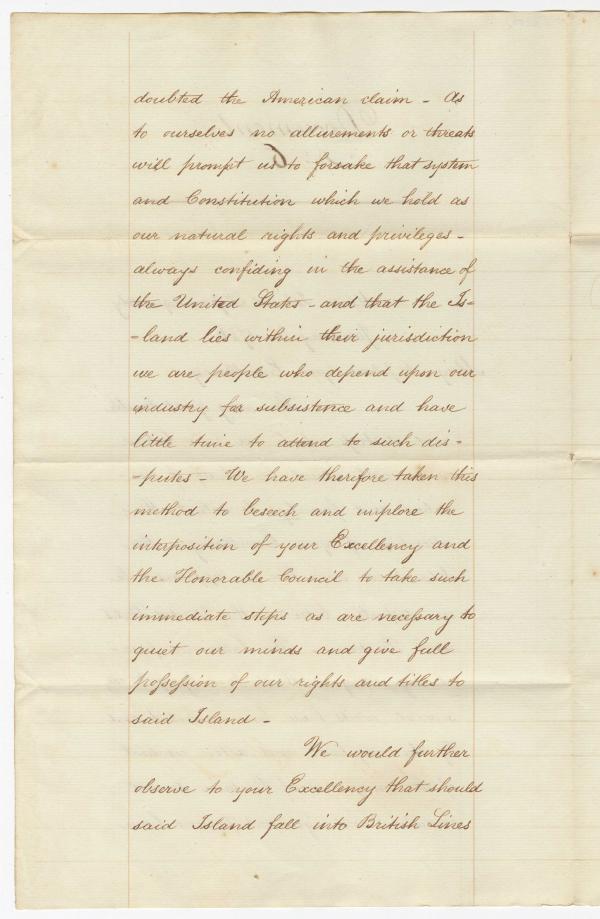 doubted the American claim - As
to ourselves no allurements or threats
will prompt us to forsake that system
and Constitution which we hold as
our natural rights and privileges -
always confiding in the assistance of
the United States - and that the Is-
-land lies within their jurisdiction
we are people who depend upon our
industry for subsistence and have
little time to attend to such dis-
-putes - We have therefore taken this
method to beseech and implore the
interposition of your Excellency and
the Honorable Council to take such
immediate steps as are necessary to
quiet our minds and give full
possession of our rights and titles to
said Island -
We would further
observe to your Excellency that should
said Island fall into British Lines